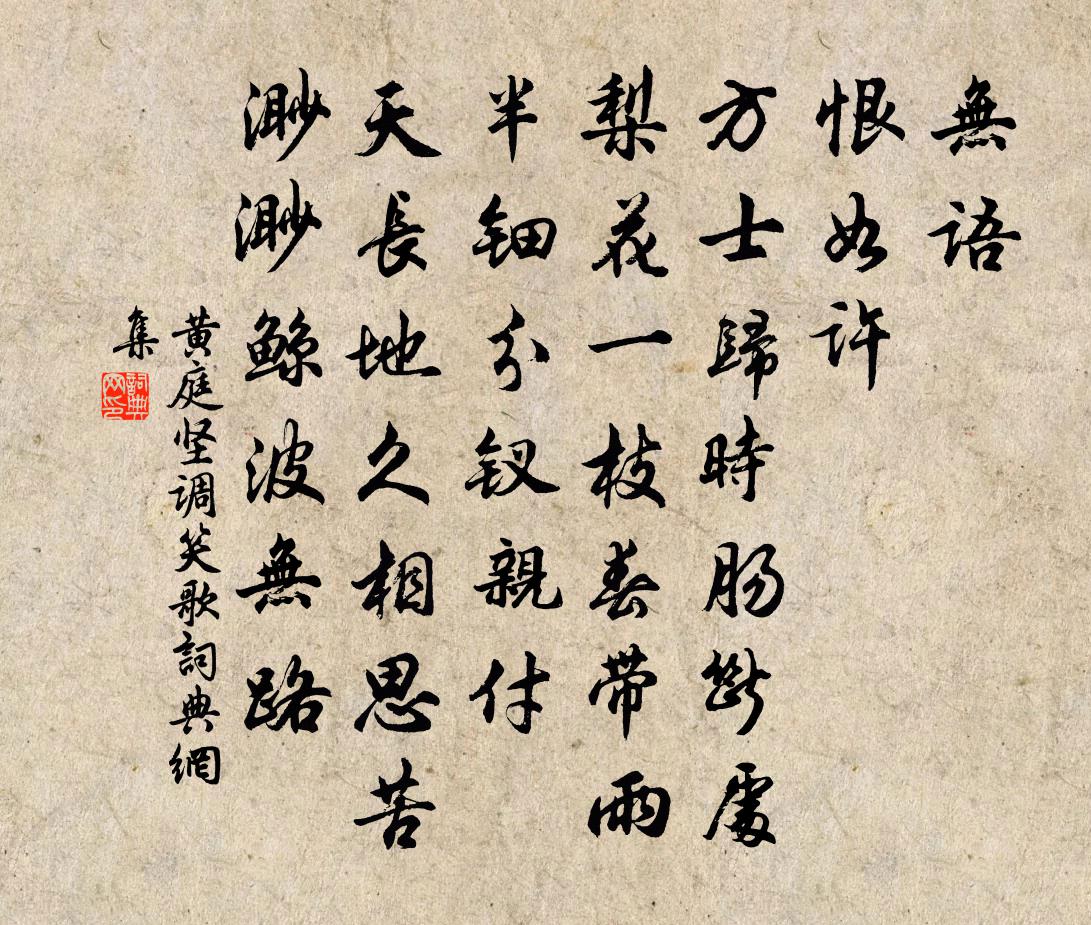 無語
恨如许
方士歸時肠斷處
梨花一枝春带雨
半钿分钗親付
天長地久相思苦
渺渺鲸波無路
黄庭坚调笑歌詞典網
集
詞典
网印